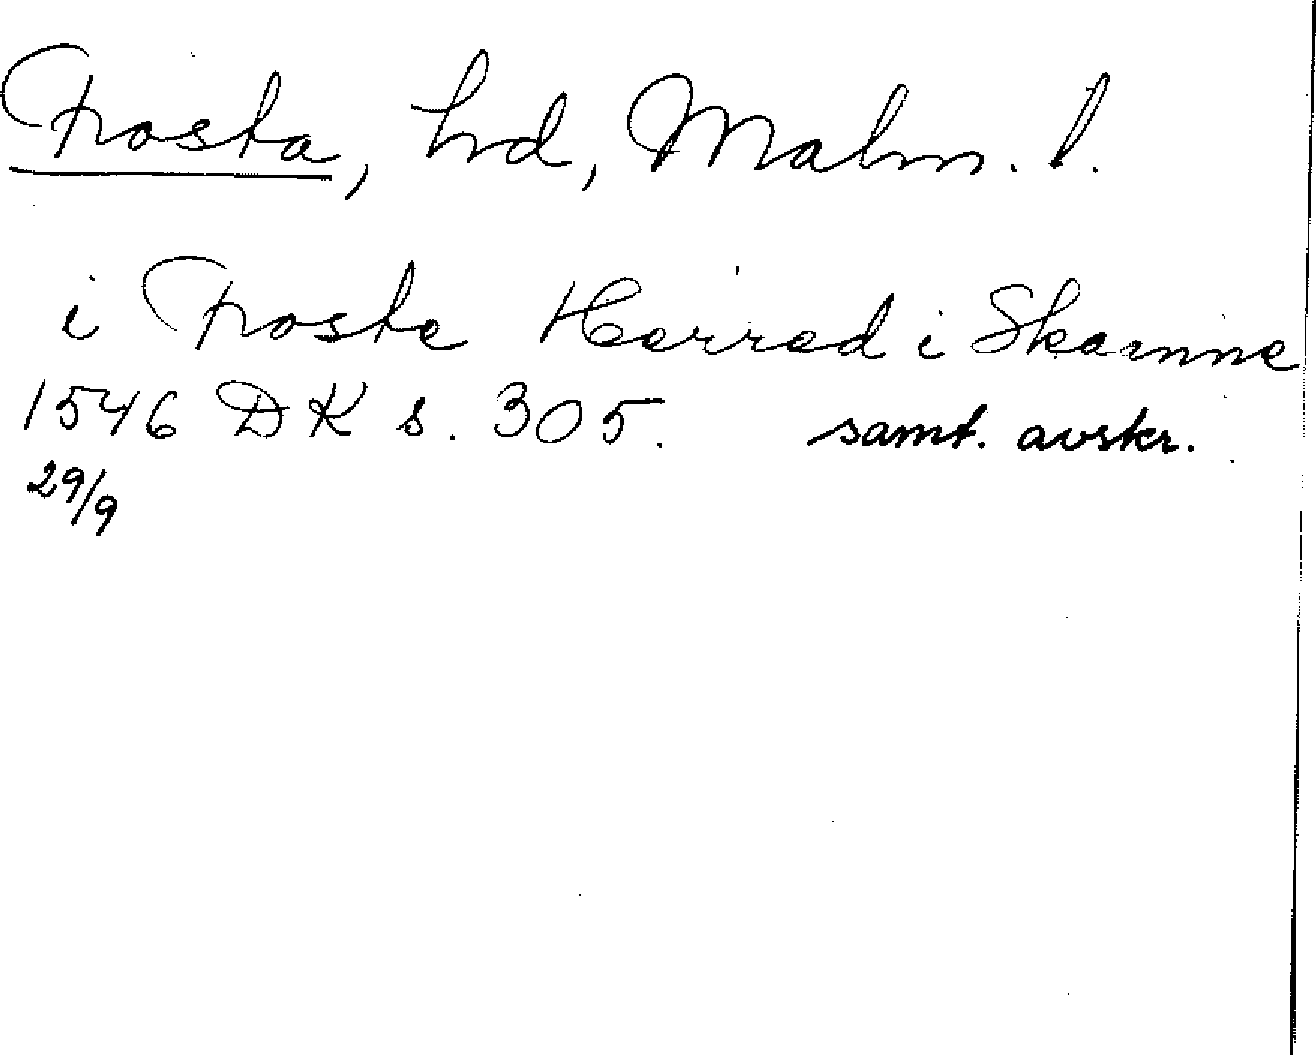 Frosta, hd, Malm. l.
i Froste Herred i Skaanne
1546 DK s. 305. samt. avskr.
29/9